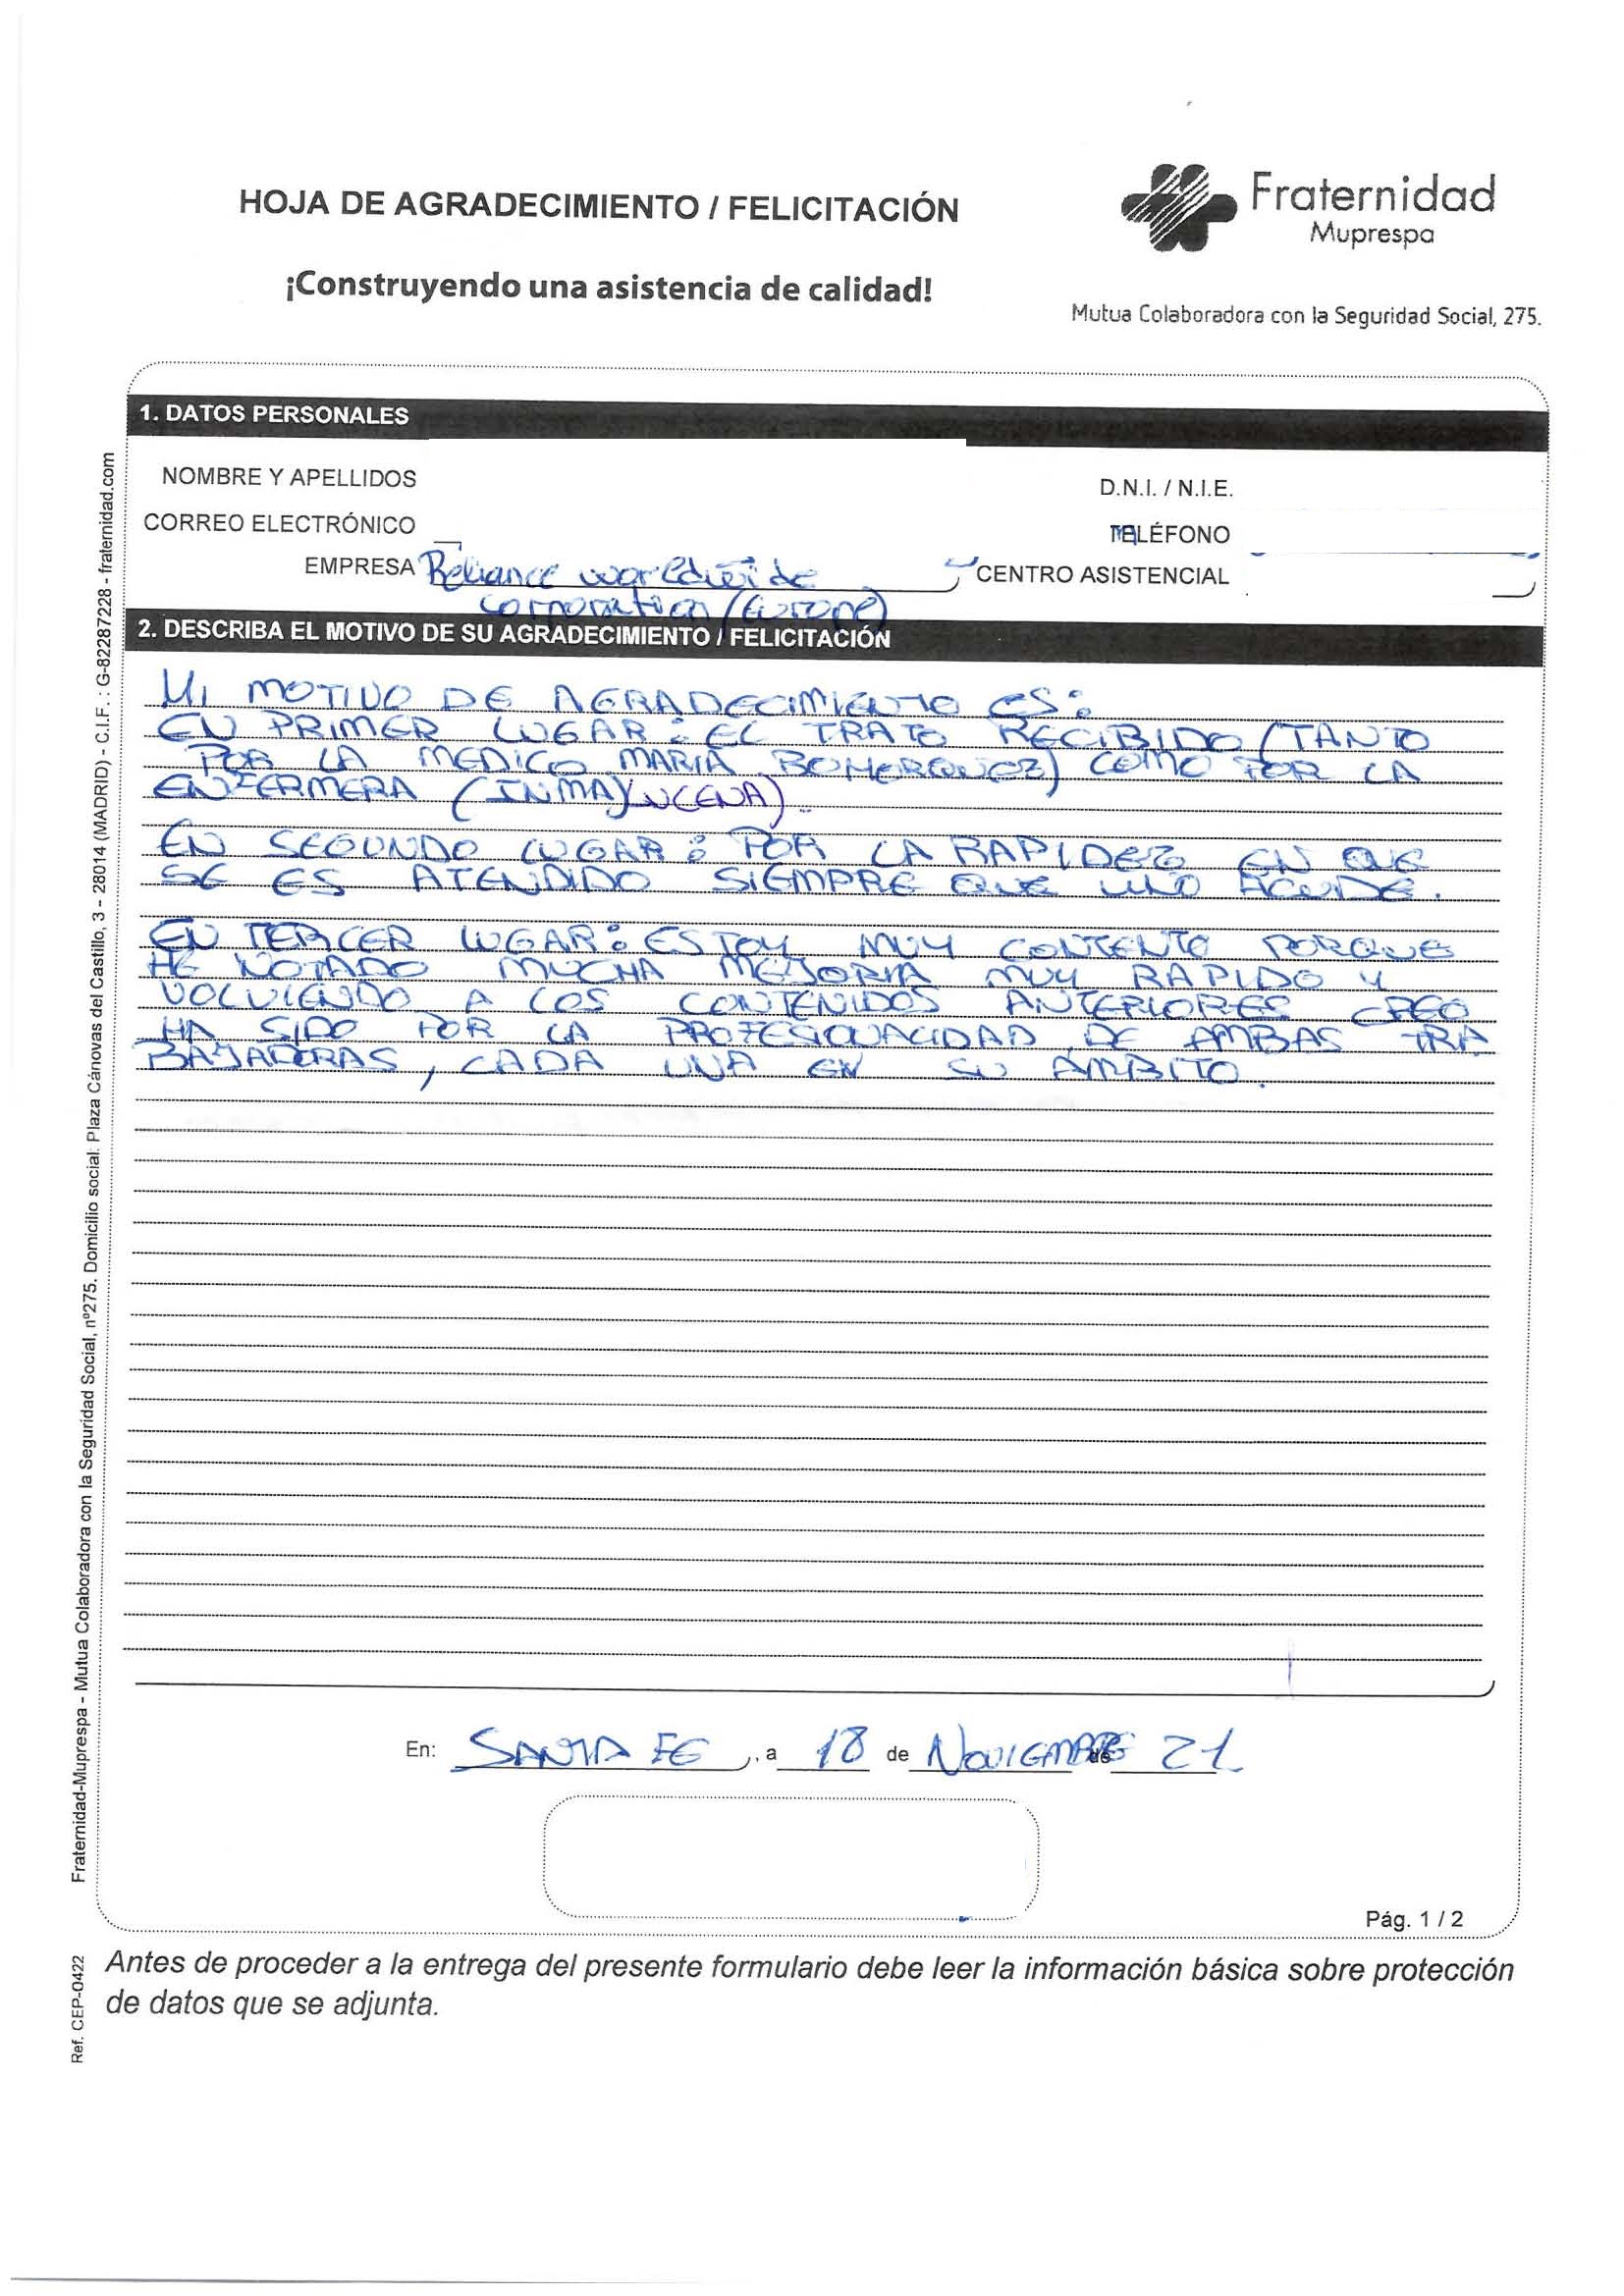 HOJA DE AGRADECIMIENTO / FELICITACIÓN
¡Construyendo una asistencia de calidad!
Fraternidad
Muprespa
Mutua Colaboradora con la Seguridad Social, 275.
1. DATOS PERSONALES
NOMBRE Y APELLIDOS
D.N.I. / N.I.E.
CORREO ELECTRÓNICO
TELÉFONO
EMPRESA Reliance worldwide
CENTRO ASISTENCIAL
corporation (Europe)
2. DESCRIBA EL MOTIVO DE SU AGRADECIMIENTO / FELICITACIÓN
MI MOTIVO DE AGRADECIMIENTO ES:
EN PRIMER LUGAR: EL TRATO RECIBIDO (TANTO
POR LA MEDICO MARIA BOHORQUEZ) COMO POR LA
ENFERMERA (INMA LUCENA).
EN SEGUNDO LUGAR: POR LA RAPIDEZ EN QUE
SE ES ATENDIDO SIEMPRE QUE UNO ACUDE.
EN TERCER LUGAR: ESTOY MUY CONTENTO PORQUE
HE NOTADO MUCHA MEJORIA MUY RAPIDO Y
VOLVIENDO A LOS CONTENIDOS ANTERIORES CREO
HA SIDO POR LA PROFESIONALIDAD DE AMBAS TRA
BAJADORAS, CADA UNA EN SU AMBITO.
En: SANTA FE, a 18 de NOVIEMBRE de 21
Pág. 1 / 2
Antes de proceder a la entrega del presente formulario debe leer la información básica sobre protección
de datos que se adjunta.
Fraternidad-Muprespa - Mutua Colaboradora con la Seguridad Social, nº275. Domicilio social: Plaza Cánovas del Castillo, 3 - 28014 (MADRID) - C.I.F. : G-82287228 - fraternidad.com
Ref. CEP-0422